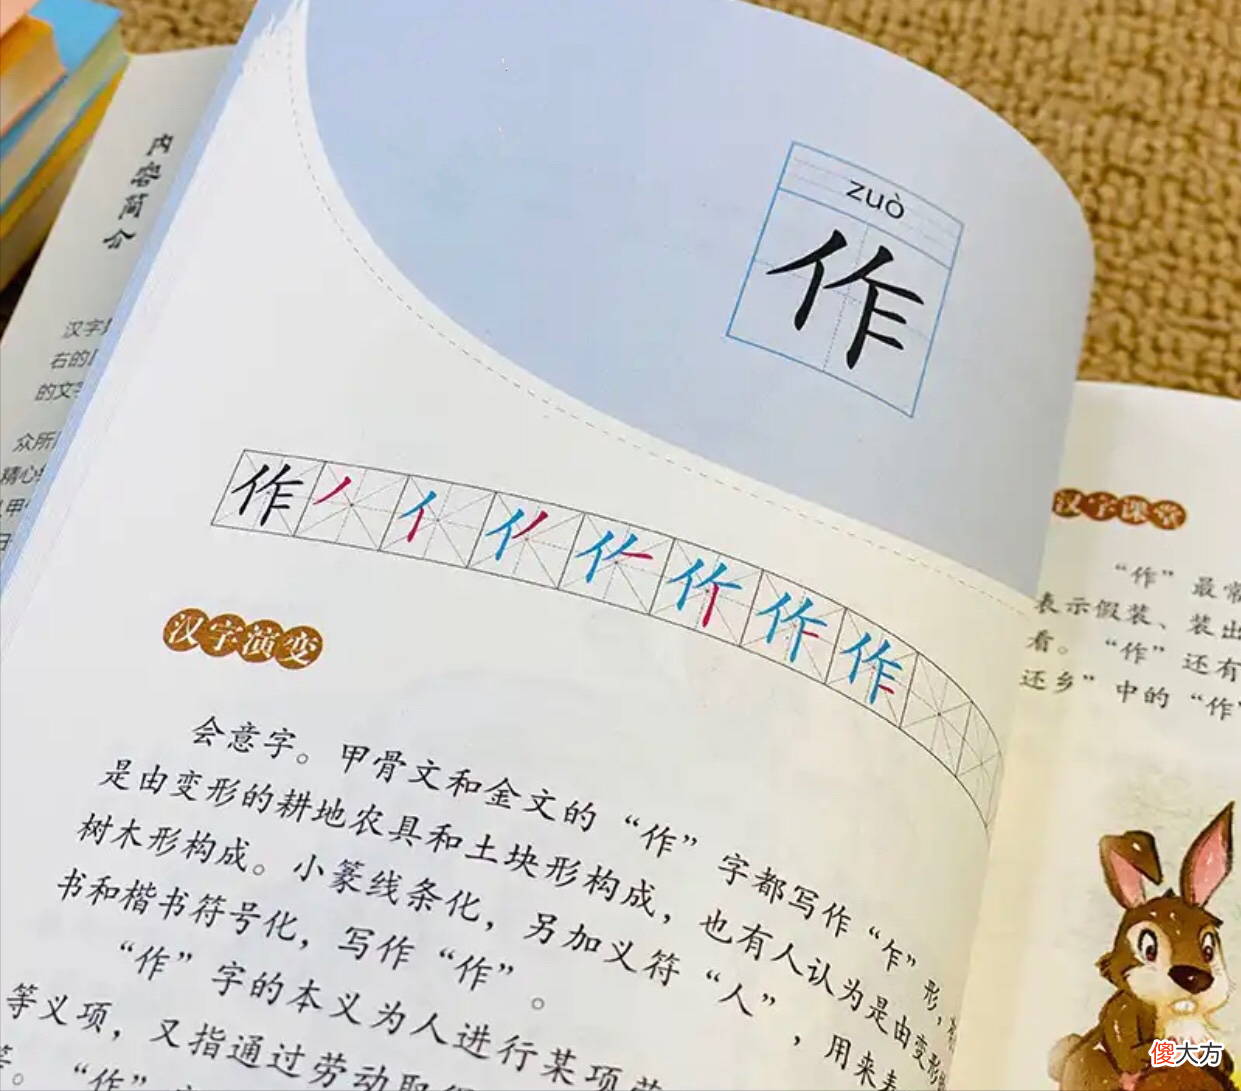 内容简介
汉字
右的
的文字
众所
精心
甲
zuò
作
作
汉字演变
会意字。甲骨文和金文的“作”字都写作“乍”形,
是由变形的耕地农具和土块形构成,也有人认为是由变形
树木形构成。小篆线条化,另加义符“人”,用来表
书和楷书符号化,写作“作”。
“作”字的本义为人进行某项
等义项,又指通过劳动取得
等。“作”
汉字课堂
“作”最常
表示假装、装出
看。“作”还有
还乡”中的“作”
傻大方